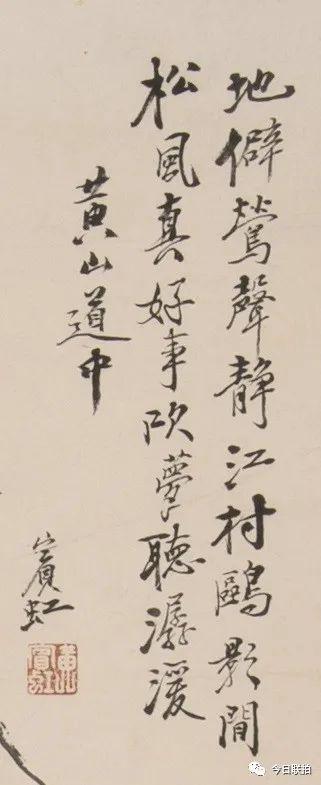 地僻鶯聲靜江村鷗影閒
松風真好事吹夢聽潺湲
黃山道中
賓虹
今日联拍